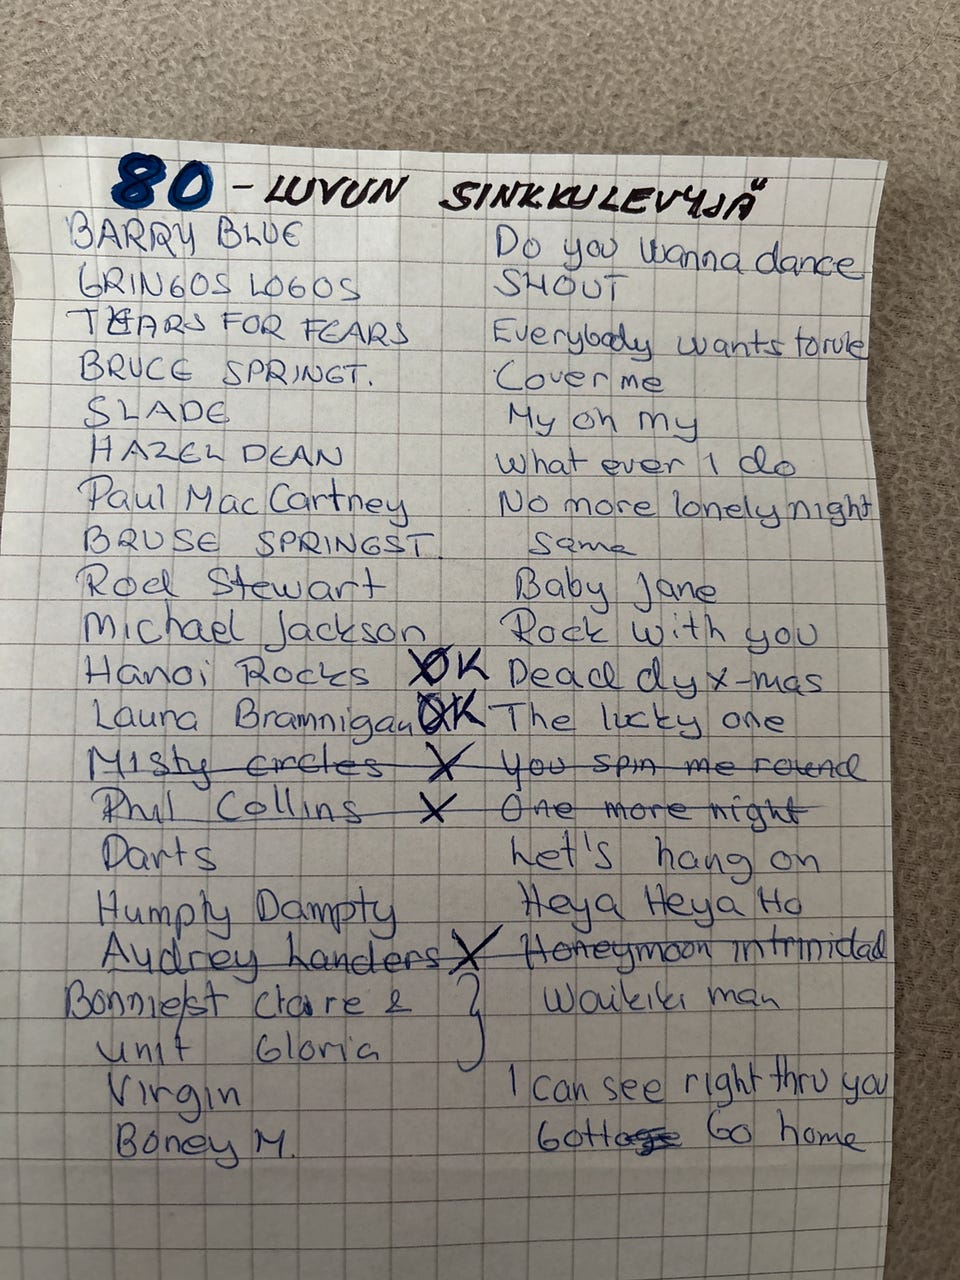 80 - LUVUN SINKKULEVYJÄ
BARRY BLUE Do you wanna dance
GRINGOS LOGOS SHOUT
TEARS FOR FEARS Everybody wants to rule
BRUCE SPRINGT. Cover me
SLADE My oh my
HAZEL DEAN What ever I do
Paul MacCartney No more lonely night
BRUSE SPRINGST. Same
Rod Stewart Baby Jane
Michael Jackson Rock with you
Hanoi Rocks XOK Dead dy x-mas
Laura Brannigan XOK The lucky one
Misty circles X You spin me round
Phil Collins X One more night
Darts Let's hang on
Humpty Dampty Heya Heya Ho
Audrey Landers X Honeymoon in trinidad
Bonnie St Claire & Waikiki man
unit Gloria
Virgin I can see right thru you
Boney M. Gotta Go home